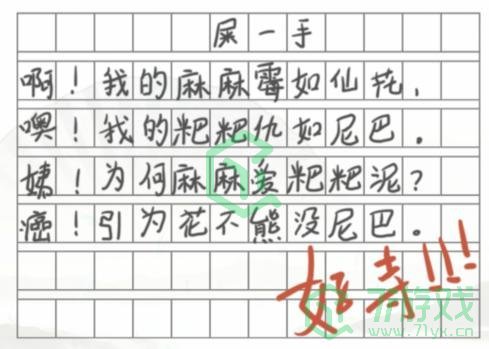 屎一手
啊！我的麻麻霉如仙花，
噢！我的粑粑仇如尼巴。
姨！为何麻麻爱粑粑泥？
癌！引为花不熊没尼巴。
好寺!!!
71游戏
www.71yx.cn